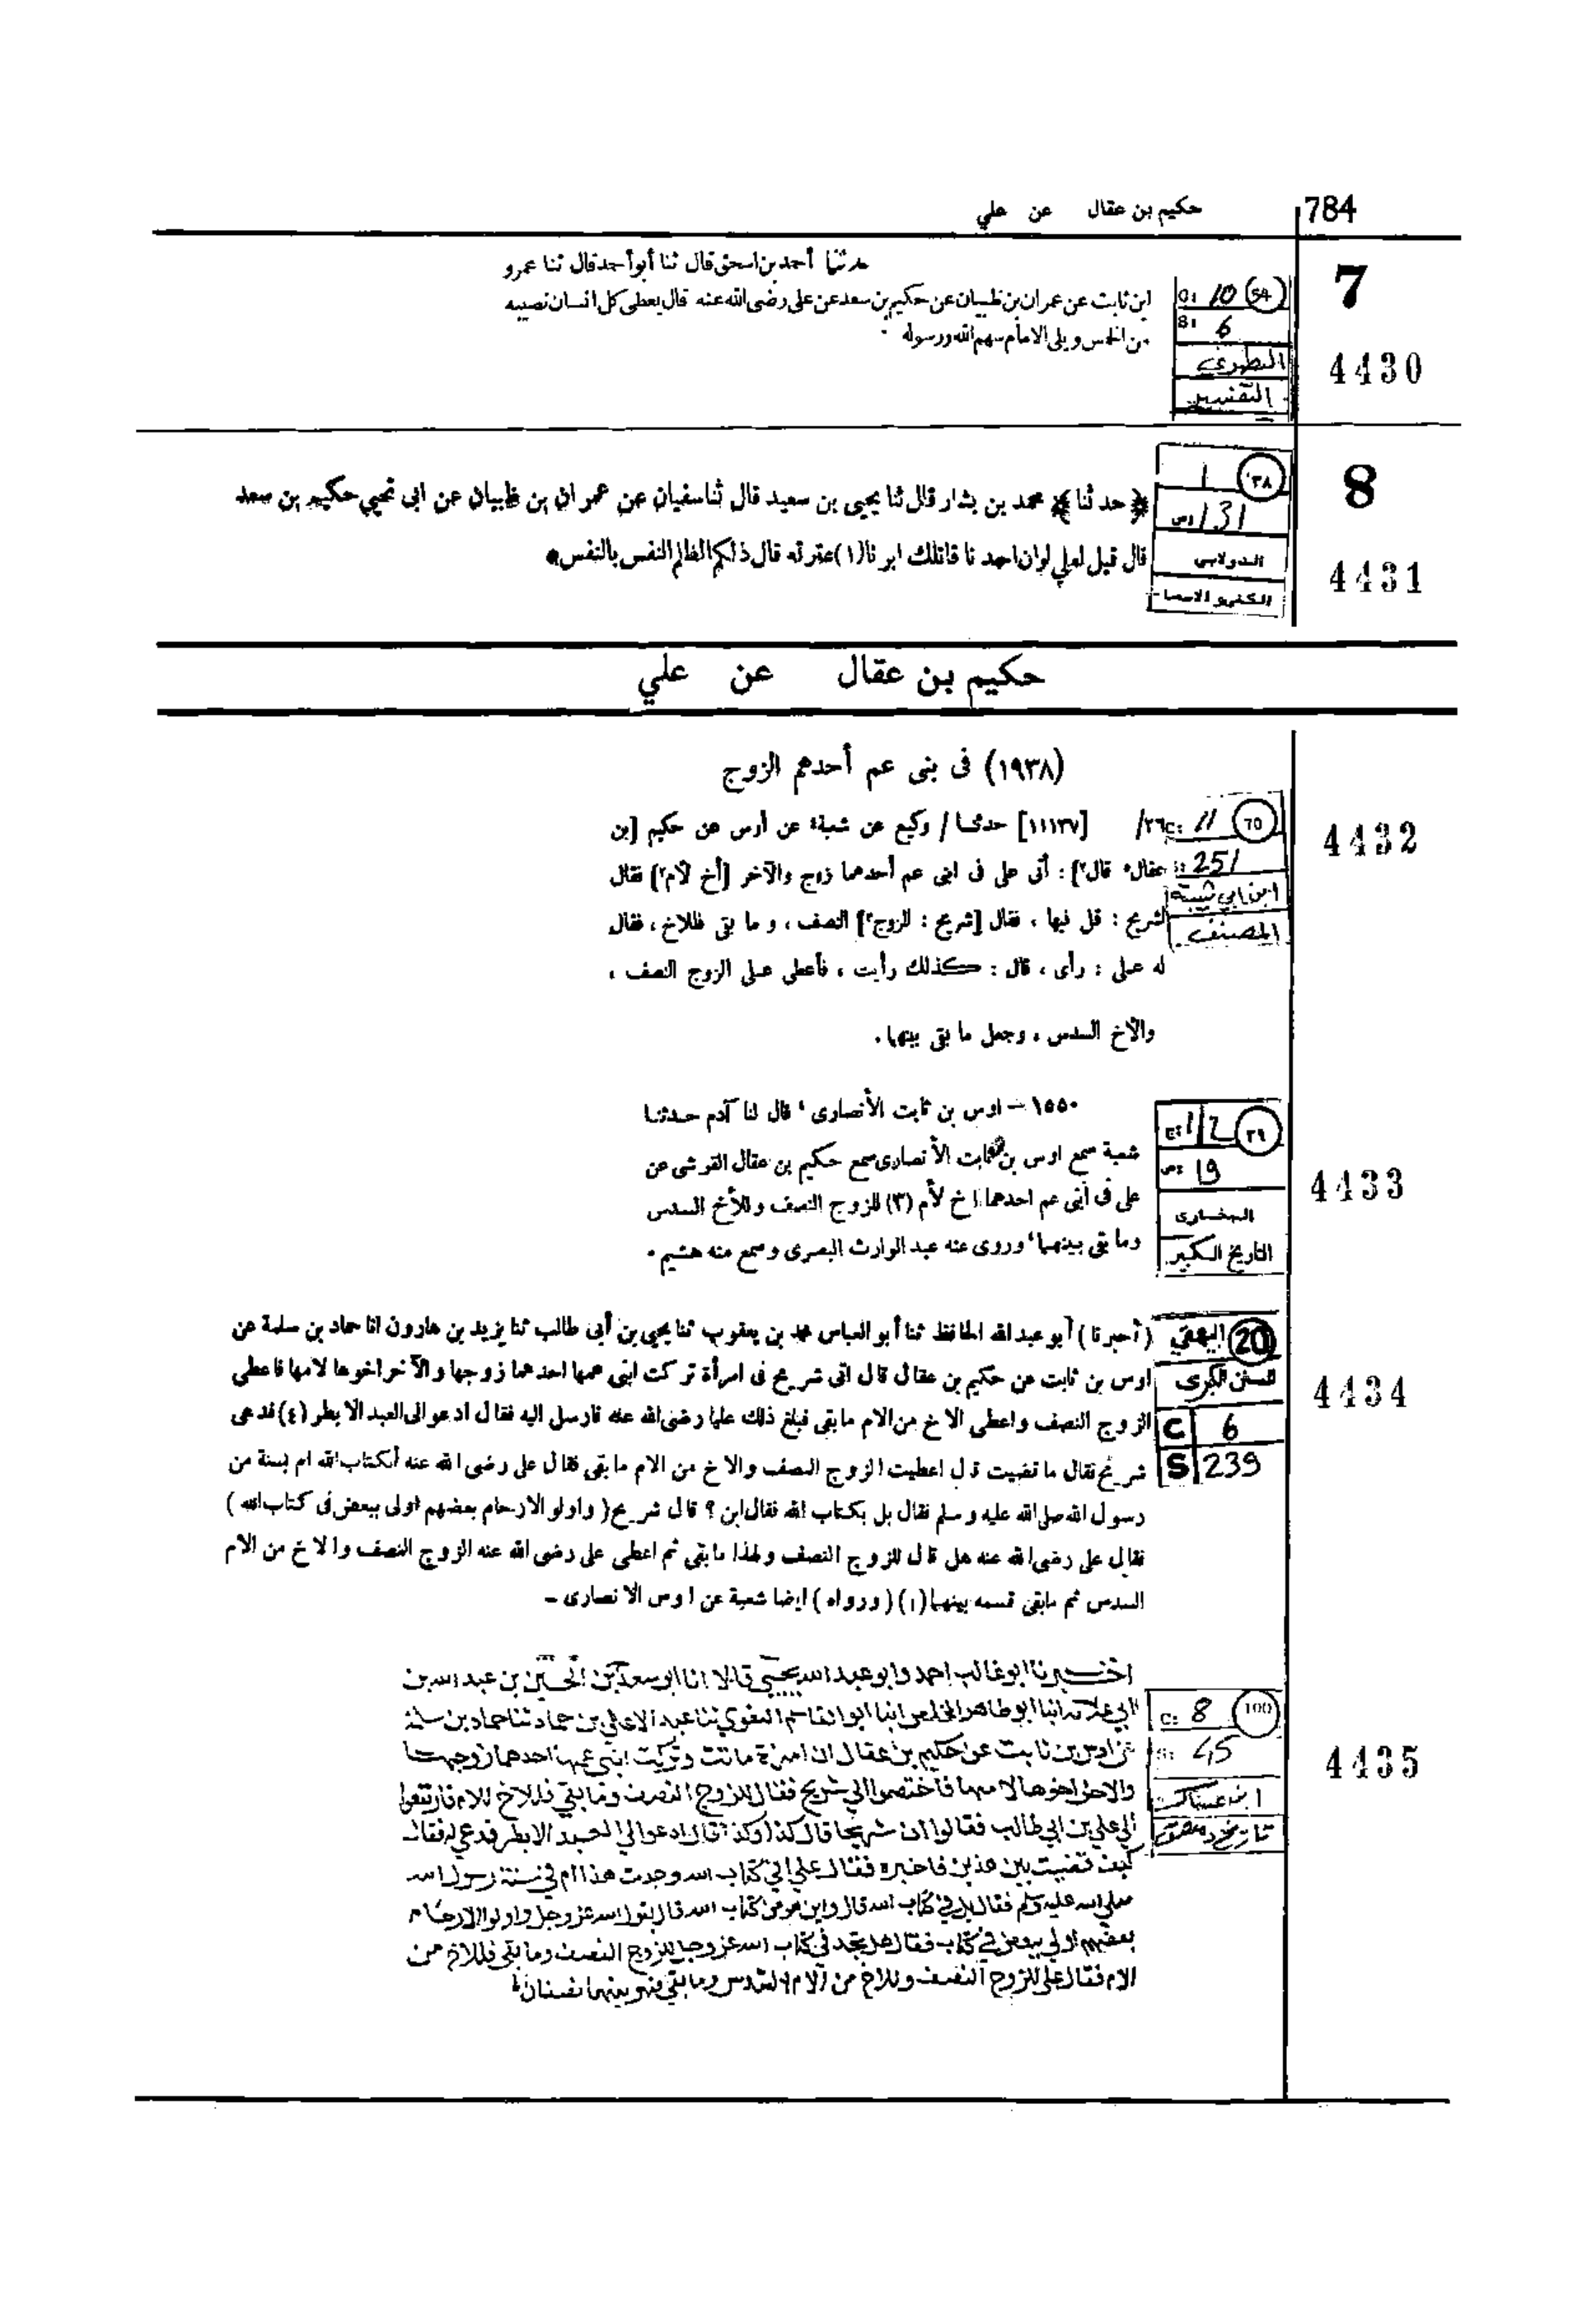 784
حكيم بن عقال عن علي
7
حدثنا أحمد بن اسحق قال ثنا أبو أحمد قال ثنا عمرو
ابن ثابت عن عمران بن ظبيان عن حكيم بن سعد عن على رضى الله عنه قال يعطى كل انسان نصيبه
من الخمس ويلى الامام سهم الله ورسوله
10 (54)
6
الطبري
التفسير
4430
8
﴿حدثنا﴾ محمد بن بشار قال ثنا يحيى بن سعيد قال ثنا سفيان عن عمران بن ظبيان عن ابى تحيي حكيم بن سعد
قال قيل لعلي لو ان احدنا قاتلك ابرنا (١) عترته قال ذلكم الظلم النفس بالنفس
1 ٣٨
ص: 131
الدولابي
الكنى و الاسماء
4431
حكيم بن عقال عن علي
(١٩٣٨) فى بنى عم أحدهم الزوج
[١١١٣٧] حدثنا / وكيع عن شعبة عن أوس عن حكيم [بن
عقال قال]: أتى على فى ابنى عم أحدهما زوج والآخر [أخ لأم] فقال
لشريح : قل فيها ، فقال [شريح : للزوج] النصف ، و ما بقى فللاخ ، فقال
له على : رأى ، قال : كذلك رأيت ، فأعطى على الزوج النصف ،
والأخ السدس ، وجعل ما بقى بينهما .
C: 11 70
251
ابن ابي شيبة
المصنف
4432
١٥٥٠ - اوس بن ثابت الأنصارى ، قال لنا آدم حدثنا
شعبة سمع اوس بن ثابت الأنصارى سمع حكيم بن عقال القرشى عن
على فى ابنى عم احدهما اخ لأم (٣) للزوج النصف وللأخ السدس
وما بقى بينهما ، وروى عنه عبد الوارث البصرى وسمع منه هشيم .
C: 1/2 ٣٩
ص: 19
البخارى
التاريخ الكبير
4433
(أخبرنا) أبو عبد الله الحافظ ثنا أبو العباس محمد بن يعقوب ثنا يحيى بن أبى طالب ثنا يزيد بن هارون انا حماد بن سلمة عن
اوس بن ثابت عن حكيم بن عقال قال اتى شريح فى امرأة تركت ابنى عمها احدهما زوجها والآخر اخوها لامها فاعطى
الزوج النصف واعطى الاخ من الام ما بقى فبلغ ذلك عليا رضى الله عنه فارسل اليه فقال ادعوا لى العبد الابظر (٤) فدعى
شريح فقال ما قضيت قال اعطيت الزوج النصف والاخ من الام ما بقى فقال على رضى الله عنه أبكتاب الله ام بسنة من
رسول الله صلى الله عليه وسلم فقال بل بكتاب الله فقال اين ؟ قال شريح (واولو الارحام بعضهم اولى ببعض فى كتاب الله)
فقال على رضى الله عنه هل قال للزوج النصف ولهذا ما بقى ثم اعطى على رضى الله عنه الزوج النصف والاخ من الام
السدس ثم ما بقى قسمه بينهما (١) (ورواه) ايضا شعبة عن اوس الانصارى -
20 البيهقي
السنن الكبرى
C 6
S 239
4434
اخبرنا ابو غالب احمد وابو عبد الله يحيى قالا انا ابو سعد بن الحسين بن عبد الله بن
ابي علانة انبا ابو طاهر المخلص انبا ابو القاسم البغوي ثنا عبد الاعلى بن حماد ثنا حماد بن سلمة
عن اوس بن ثابت عن حكيم بن عقال ان امرأة ماتت وتركت ابني عمها احدهما زوجها
والاخر اخوها لامها فاختصموا الى شريح فقال للزوج النصف وما بقي فللاخ للام فارتفعوا
الى علي بن ابي طالب فقالوا ان شريحا قال كذا وكذا قال ادعوا لي العبد الابظر فدعي له فقال
كيف قضيت بين هذين فاخبره فقال علي افي كتاب الله وجدت هذا ام في سنة رسول الله
صلى الله عليه وسلم فقال بل في كتاب الله قال واين هو من كتاب الله قال يقول الله عز وجل واولوا الارحام
بعضهم اولى ببعض في كتاب فقال هل تجد في كتاب الله عز وجل للزوج النصف وما بقي فللاخ من
الام فقال علي للزوج النصف وللاخ من الام السدس وما بقي فهو بينهما نصفان
C: 8 100
45
ابن عساكر
تاريخ دمشق
4435